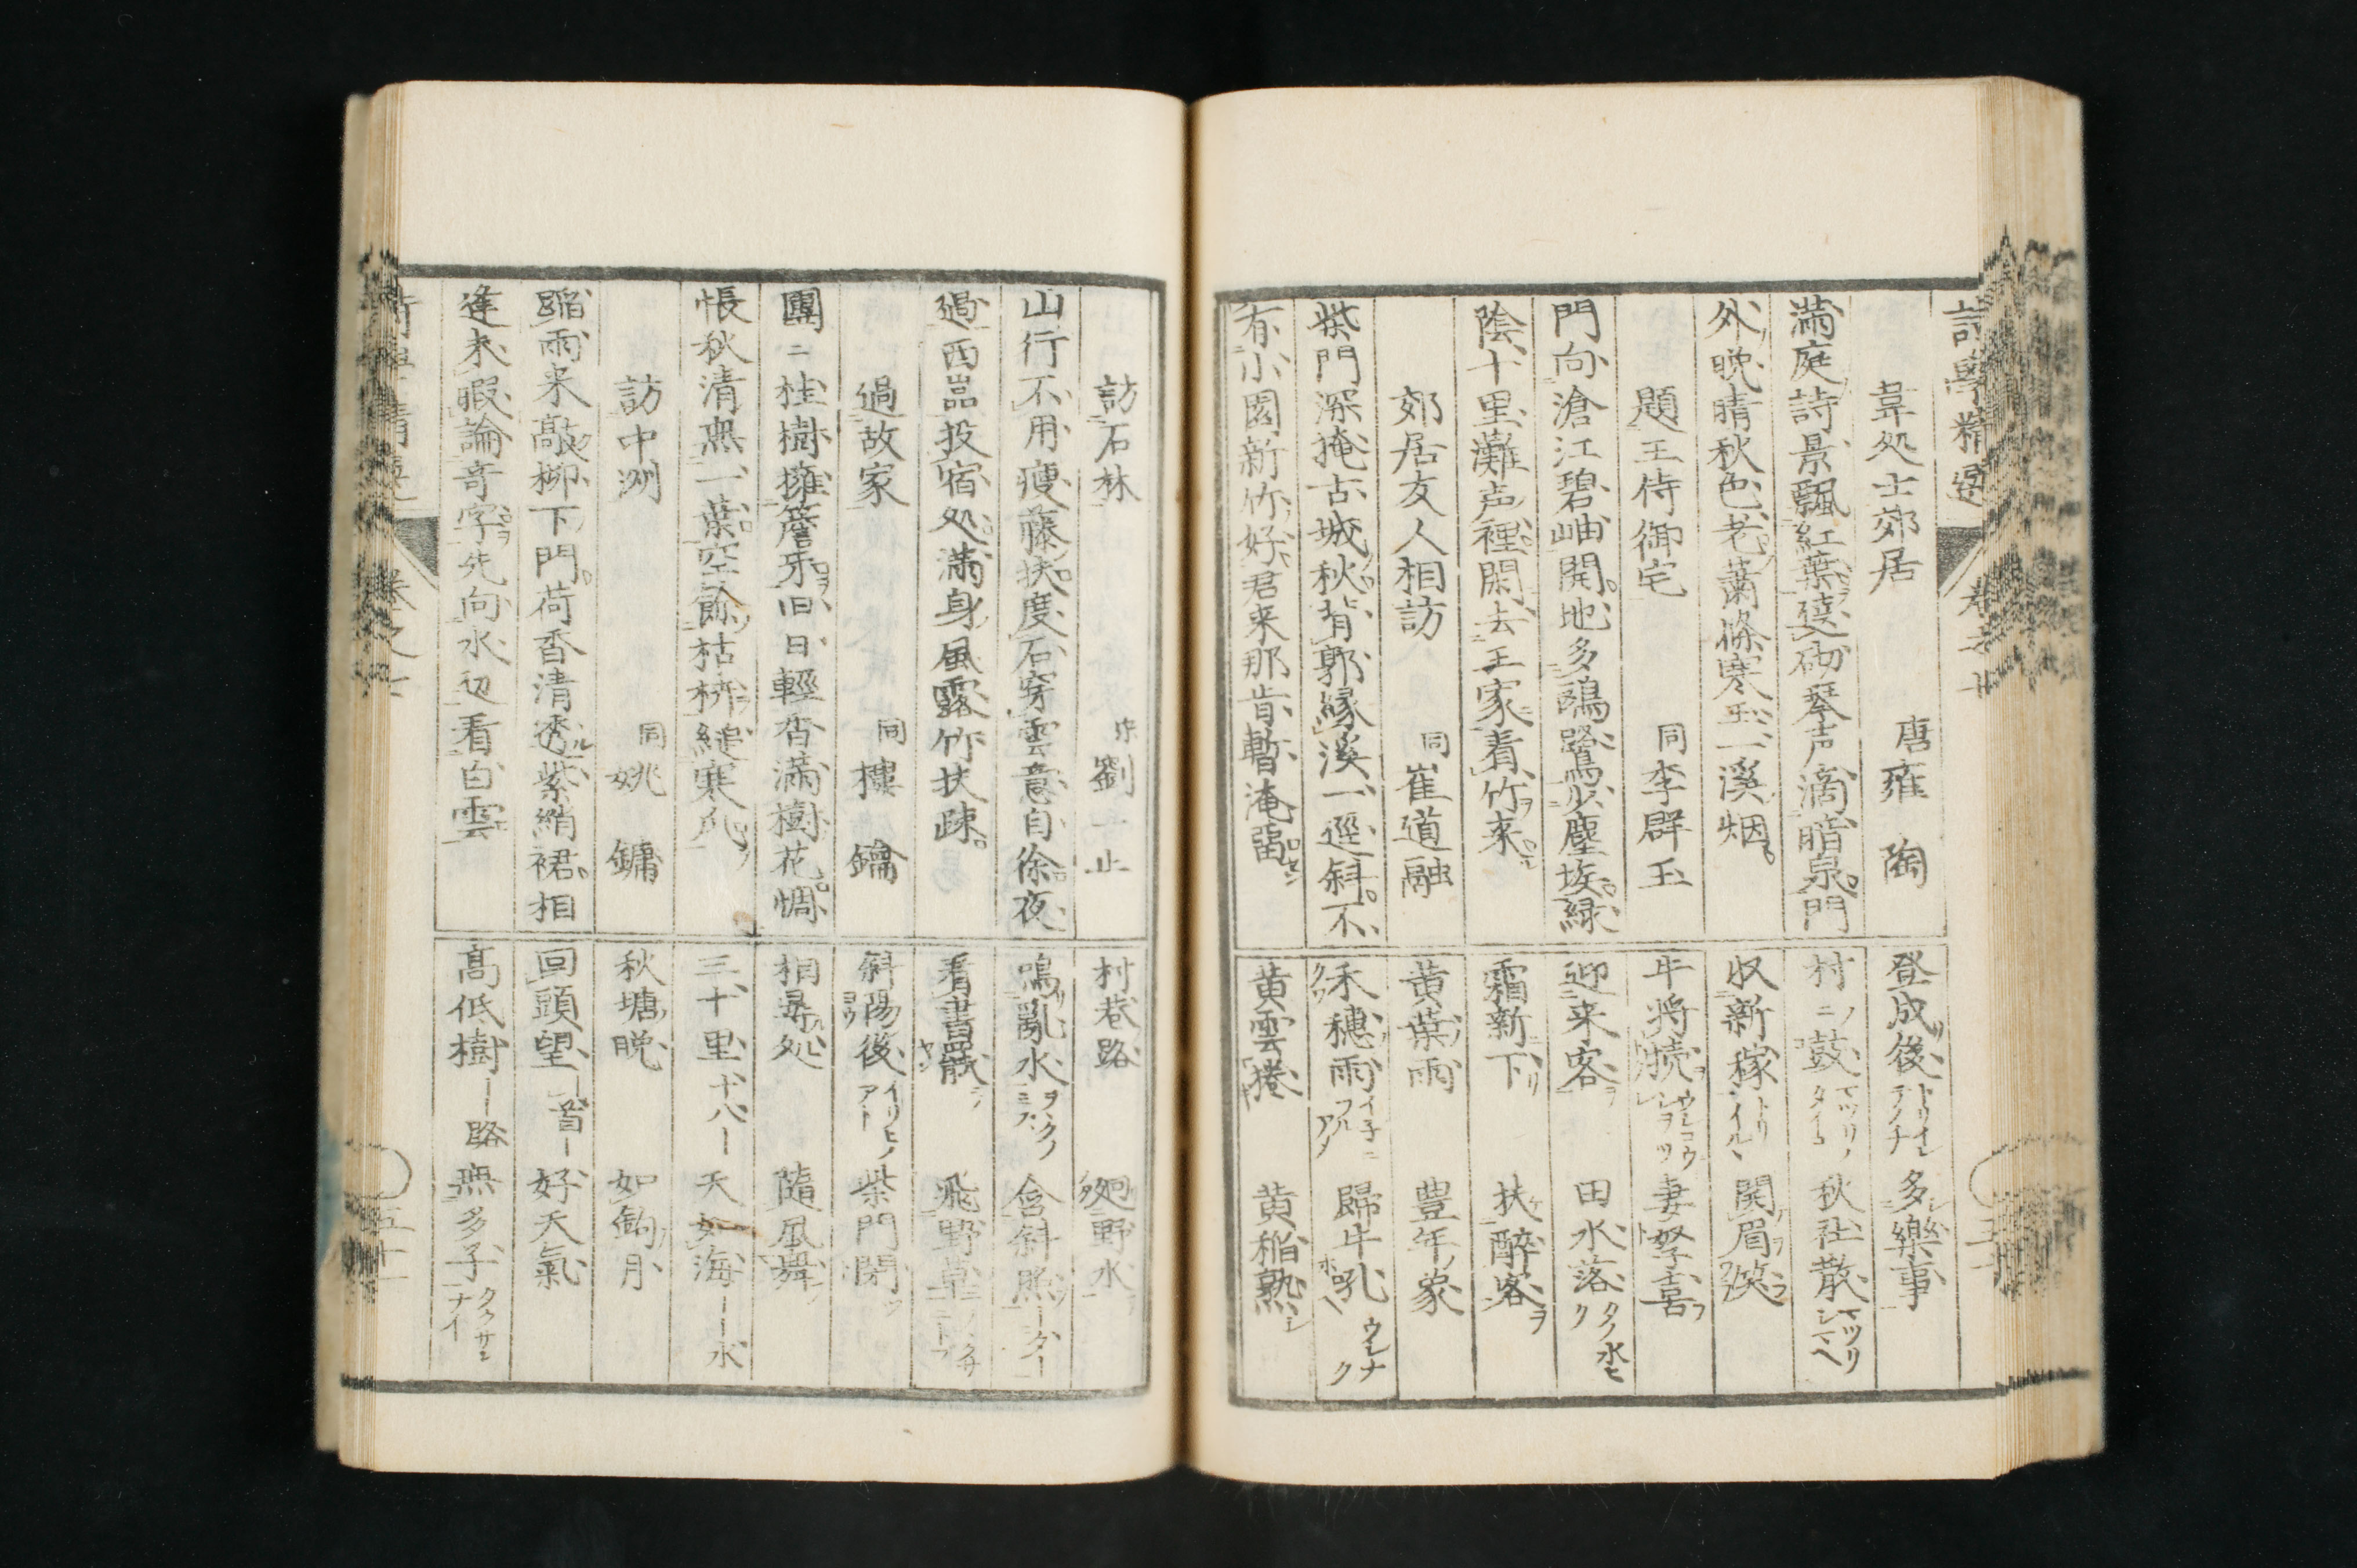 韋処士郊居　唐雍陶
満庭詩景飄紅葉遶砌琴声滴暗泉門
外晩晴秋色老蕭條寒玉一溪烟
題王侍御宅　同李群玉
門向滄江碧岫開地多鷗鷺少塵埃緑
陰十里灘声裡閑去王家看竹来
郊居友人相訪　同崔道融
柴門深掩古城秋背郭縁溪一逕斜不
有小園新竹好君来那肯暫淹留
登成後　多樂事
村ニ鼓　秋社散
収新稼　開眉笑
牛将犢　妻孥喜
迎来客　田水落
霜新下　扶醉客
黄葉雨　豊年象
禾穂雨　歸牛吼
黄雲捲　黄稲熟
訪石林　宋劉一止
山行不用痩藤扶度石穿雲意自徐夜
過西嵓投宿処満身風露竹扶疎
過故家　同樓鑰
團ニ桂樹擁簷牙旧日輕香満樹花惆
悵秋清無一葉空餘枯枿縋寒瓜
訪中洲　同姚鏞
踏雨来敲柳下門荷香清透紫綃裙相
逢未暇論奇字先向水辺看白雲
村巷路　廻野水
鳴亂水　含斜照
看書罷　飛野草
斜陽後　柴門閉
相尋処　隨風舞
三十里　天如海
秋塘晩　如鉤月
回頭望　好天氣
髙低樹　無多子
巻之七